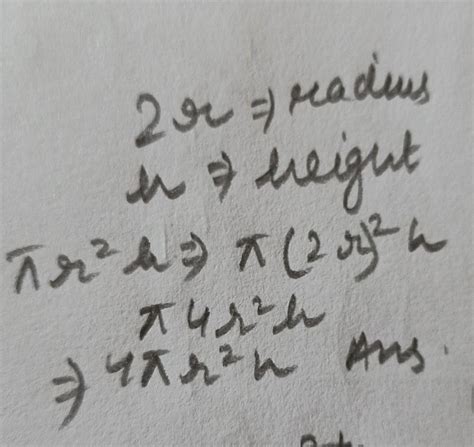 2r ⇒ radius
h ⇒ height
πr²h ⇒ π(2r)²h
π4r²h
⇒ 4πr²h Ans.